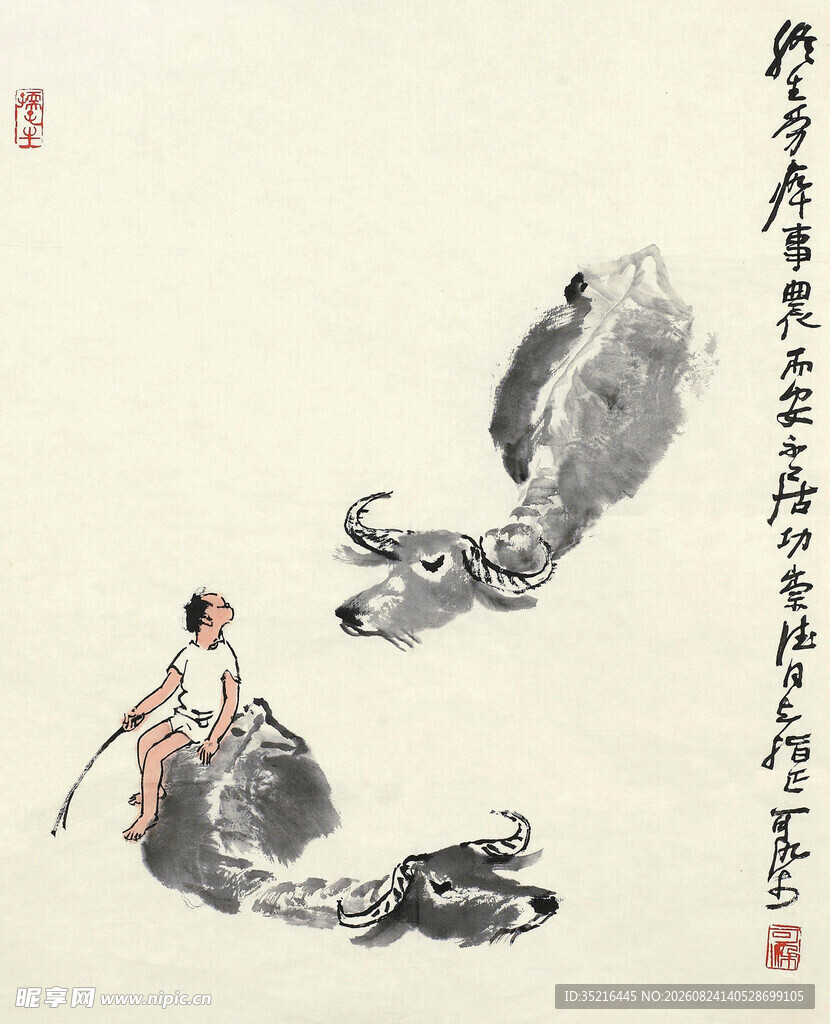 终生劳瘁事農而安不居功崇德同志指正 可染
孺子牛
可染
昵享网 www.nipic.cn
ID:35216445 NO:20260824140528699105